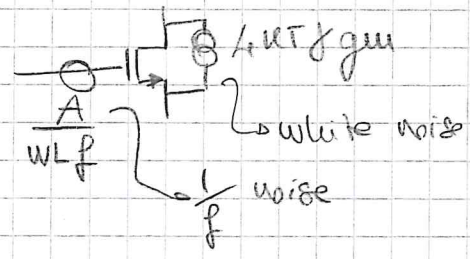 4KTγgm
A
WLf
white noise
1/f noise